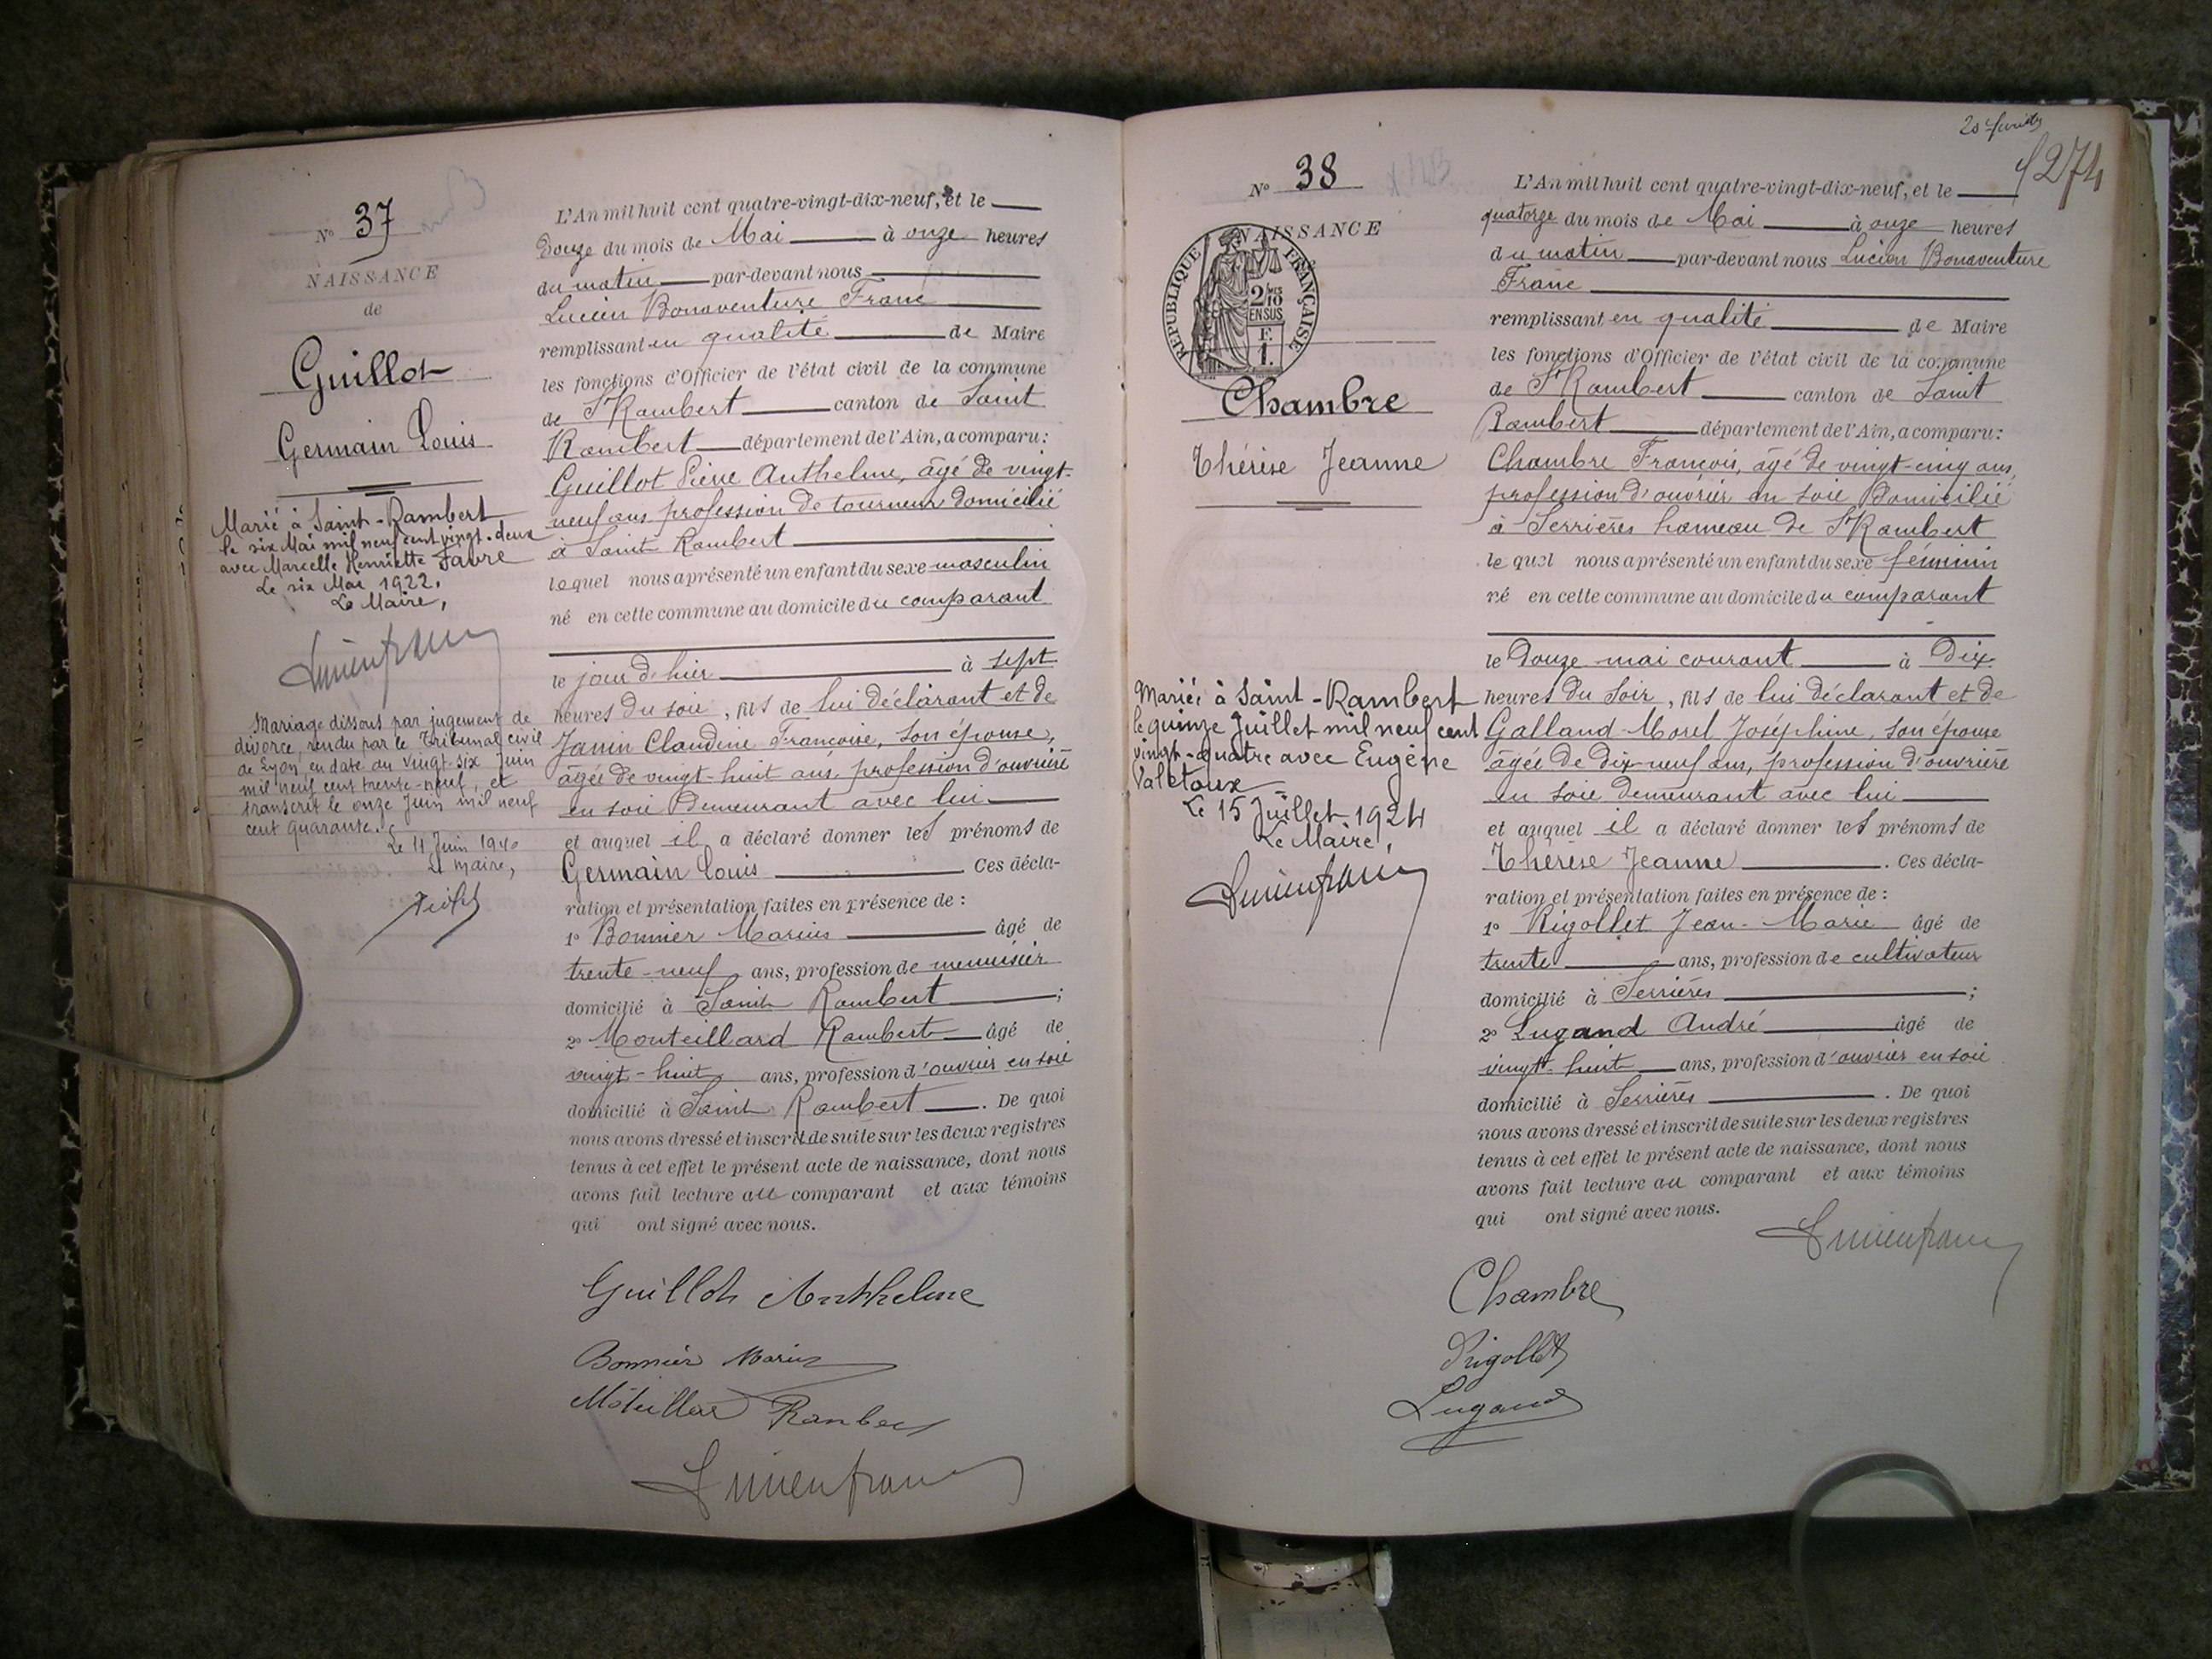 N° 37
NAISSANCE
de
Guillot
Germain Louis
Marié à Saint-Rambert
le six Mai mil neuf cent vingt-deux
avec Marcelle Henriette Favre
Le six Mai 1922.
Le Maire,
Mariage dissous par jugement de
divorce, rendu par le Tribunal civil
de Lyon, en date du vingt-six Juin
mil neuf cent trente-neuf, et
transcrit le onze Juin mil neuf
cent quarante.
Le 11 Juin 1940
Le maire,
L'An mil huit cent quatre-vingt-dix-neuf, et le
Douze du mois de Mai à onze heures
du matin par-devant nous
Lucien Bonaventure Franc
remplissant en qualité de Maire
les fonctions d'Officier de l'état civil de la commune
de St Rambert canton de Saint
Rambert département de l'Ain, a comparu :
Guillot Pierre Anthelme, âgé de vingt-
neuf ans profession de tourneur domicilié
à Saint Rambert
lequel nous a présenté un enfant du sexe masculin
né en cette commune au domicile du comparant
le jour d'hier à sept
heures du soir, fils de lui déclarant et de
Janin Claudine Françoise, son épouse,
âgée de vingt-huit ans profession d'ouvrière
en soie demeurant avec lui
et auquel il a déclaré donner les prénoms de
Germain Louis Ces décla-
ration et présentation faites en présence de :
1° Bonnier Marius âgé de
trente-neuf ans, profession de menuisier
domicilié à Saint Rambert ;
2° Monteillard Rambert âgé de
vingt-huit ans, profession d'ouvrier en soie
domicilié à Saint Rambert . De quoi
nous avons dressé et inscrit de suite sur les deux registres
tenus à cet effet le présent acte de naissance, dont nous
avons fait lecture au comparant et aux témoins
qui ont signé avec nous.
Guillot Anthelme
Bonnier Marius
Rambert
Lucien Franc
274
N° 38
NAISSANCE
RÉPUBLIQUE FRANÇAISE
2/10 EN SUS
F.
1.
Chambre
Thérèse Jeanne
Mariée à Saint-Rambert
le quinze Juillet mil neuf cent
vingt-quatre avec Eugène
Valetoux
Le 15 Juillet 1924
Le Maire,
Lucien Franc
L'An mil huit cent quatre-vingt-dix-neuf, et le
quatorze du mois de Mai à onze heures
du matin par-devant nous Lucien Bonaventure
Franc
remplissant en qualité de Maire
les fonctions d'Officier de l'état civil de la commune
de St Rambert canton de Saint
Rambert département de l'Ain, a comparu :
Chambre François, âgé de vingt-cinq ans,
profession d'ouvrier en soie domicilié
à Serrières hameau de St Rambert
lequel nous a présenté un enfant du sexe féminin
né en cette commune au domicile du comparant
le Douze mai courant à Dix
heures du soir, fils de lui déclarant et de
Galland-Morel Joséphine, son épouse
âgée de Dix-neuf ans, profession d'ouvrière
en soie demeurant avec lui
et auquel il a déclaré donner les prénoms de
Thérèse Jeanne . Ces décla-
ration et présentation faites en présence de :
1° Rigollet Jean-Marie âgé de
trente ans, profession de cultivateur
domicilié à Serrières ;
2° Lugand André âgé de
vingt-huit ans, profession d'ouvrier en soie
domicilié à Serrières . De quoi
nous avons dressé et inscrit de suite sur les deux registres
tenus à cet effet le présent acte de naissance, dont nous
avons fait lecture au comparant et aux témoins
qui ont signé avec nous.
Lucien Franc
Chambre
Rigollet
Lugand